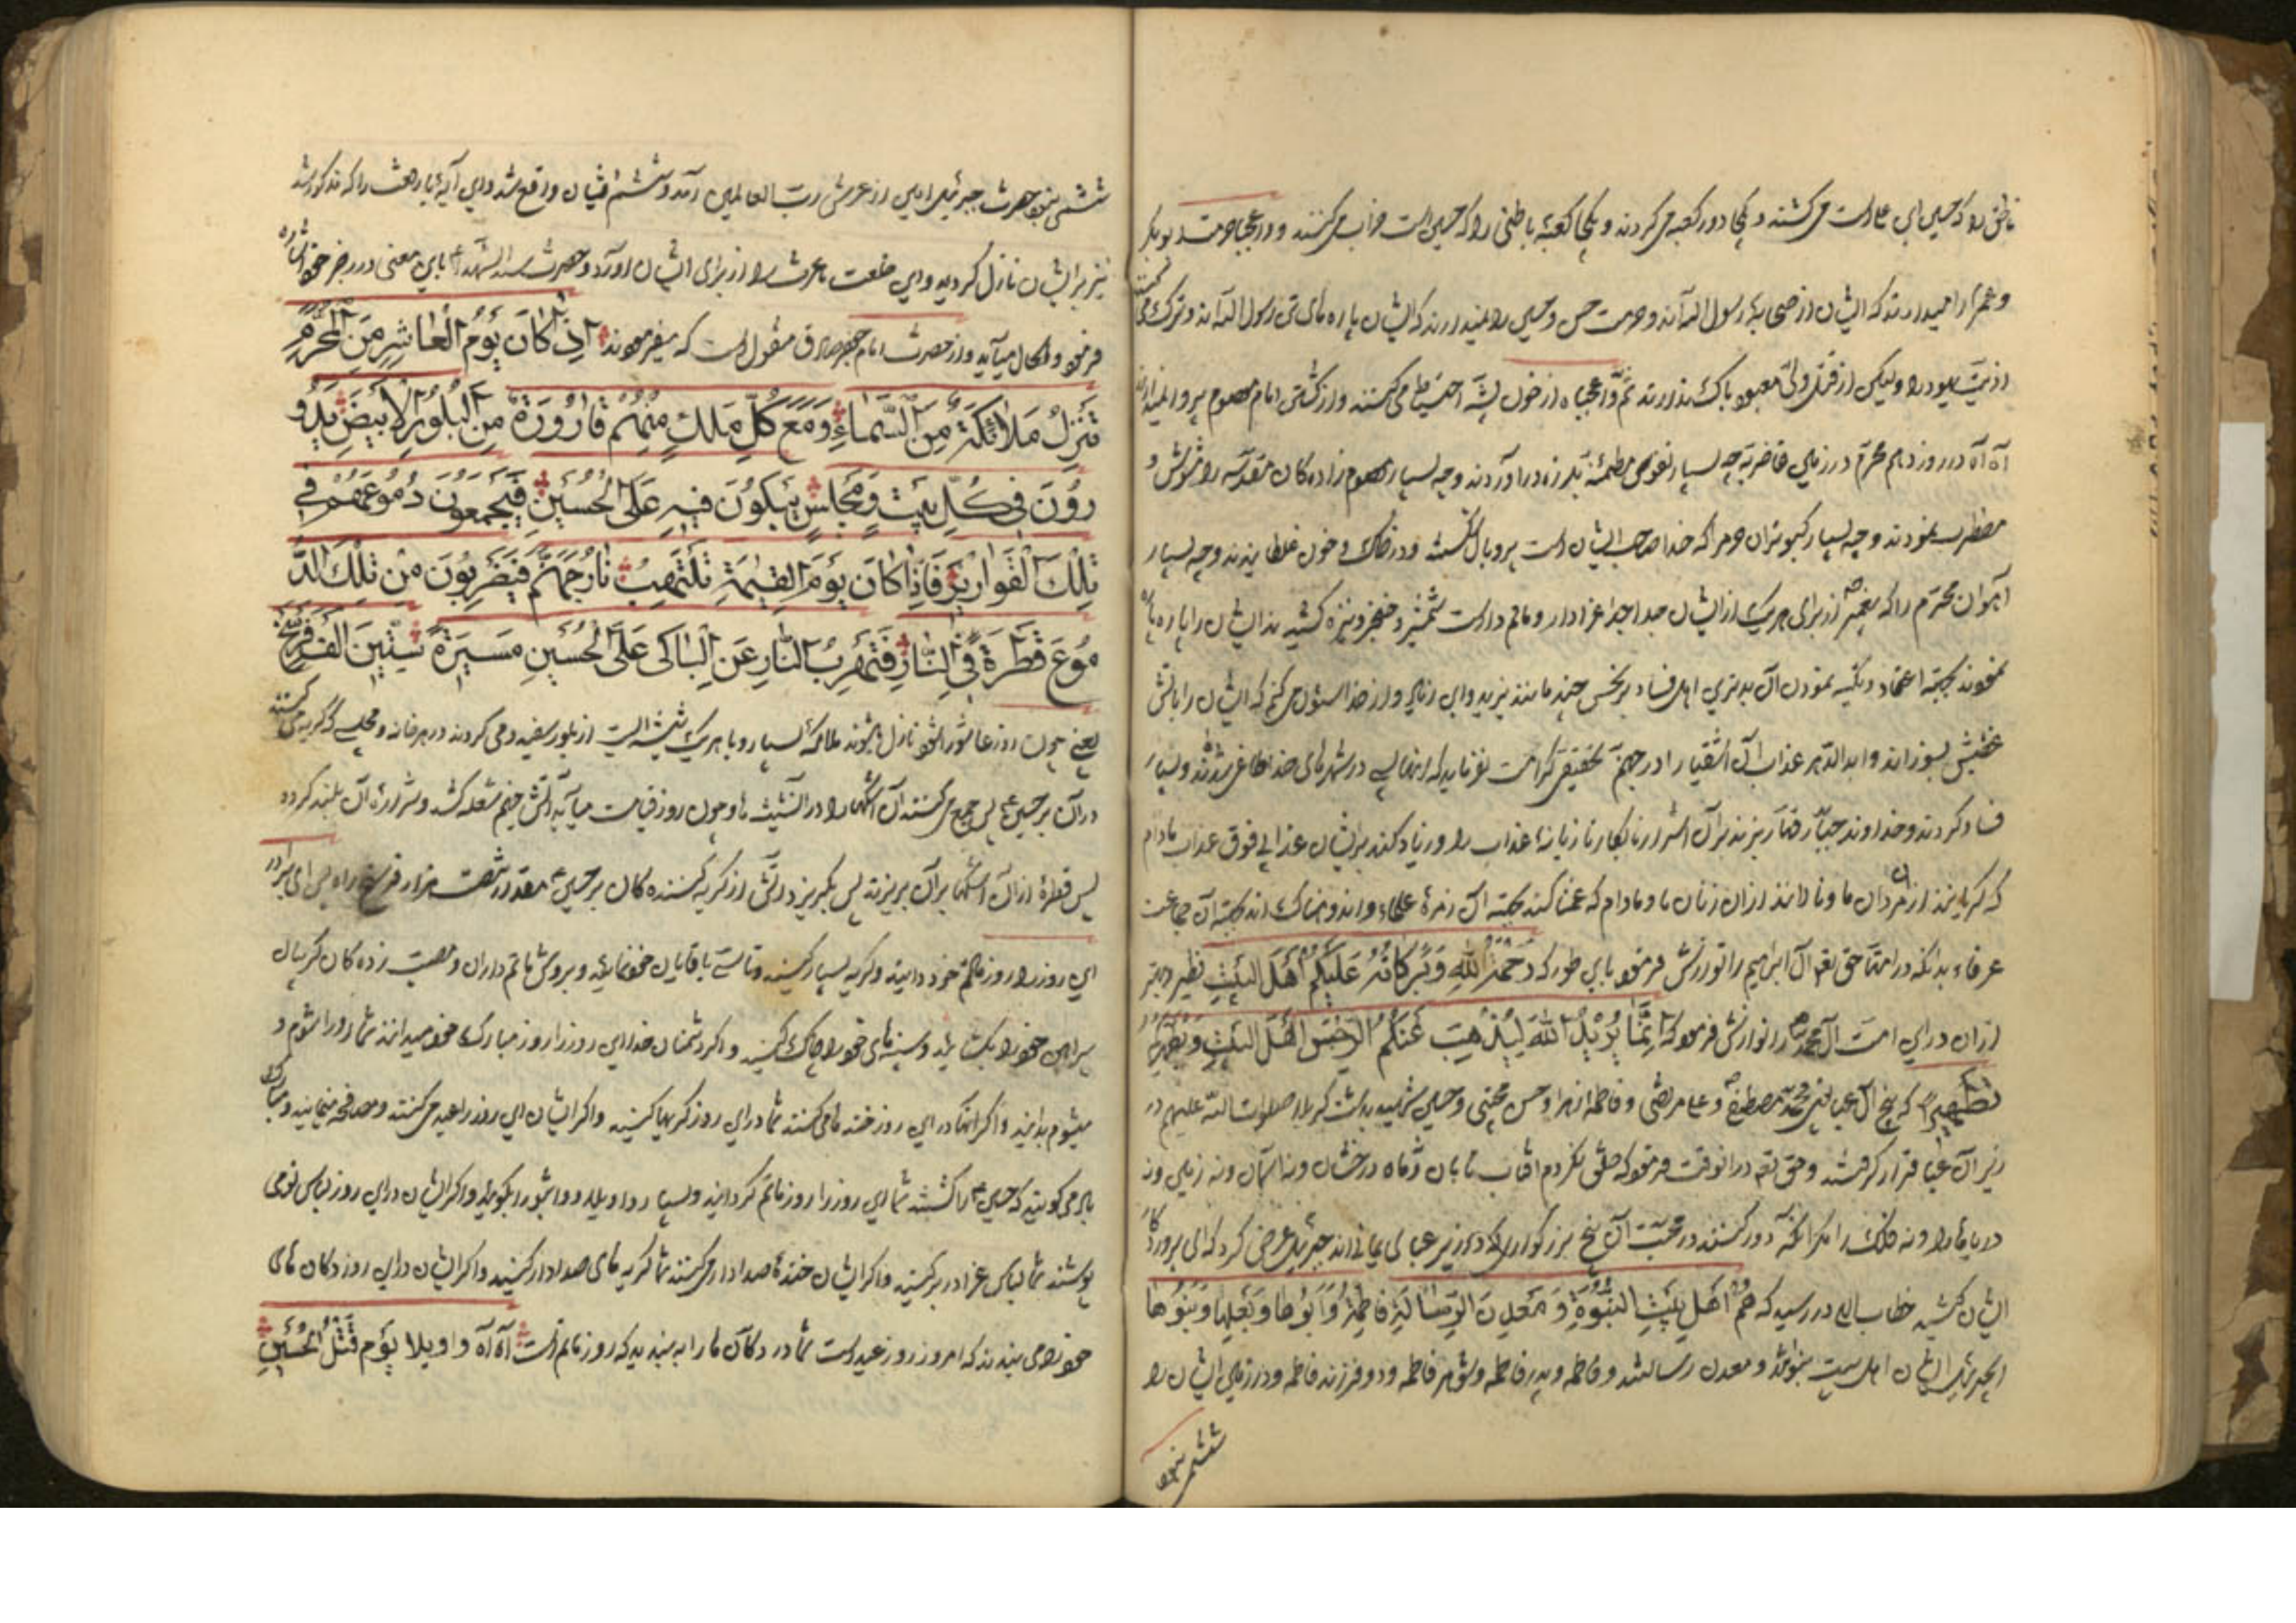 ناطق را که حسین ابن علی است می کشتند و یکجا دور کعبه می کردند و یکجا کعبهٔ باطنی را که حسین است خراب می کنند و واعجبا حرمت ابوبکر
و عمر را میدارند که ایشان از صحابهٔ رسول الله اند و حرمت حسن و حسین را نمیدارند که ایشان پاره های تن رسول الله اند و ترک می کنند
اذیت یهود را ولیکن از قتل ولی معبود باک ندارند ثم واعجباه از خون پشه احتیاط می کنند و از کشتن امام معصوم پروا نمیدارند
آه آه در روز دهم محرم در زمین غاضریه چه بسیار نفوس مطمئنه بلرزه در آوردند و چه بسیار معصوم زاده کان مقدسه را مشوش و
مضطرب نمودند و چه بسیار کبوتران حرم را که خدا صاحب ایشان است پر و بال شکسته و در خاک و خون غلطانیدند و چه بسیار
آهوان محترم را که پیغمبر از برای هر یک از ایشان جدا جدا عزادار و ماتم دار است شمشیر و خنجر و نیزه کشیدند ایشان را پاره پاره
نمودند بجهة اعتماد و تکیه نمودن آن بدترین اهل فساد بر نجس چند مانند یزید و ابن زیاد و از خدا مسئول می کنم که ایشان را باتش
غضبش بسوزاند و ابد الدهر عذاب آن اشقیا را در جهنم تخفیفی کرامت نفرماید که اینها بس در شهرهای خدا طاغی شدند و بسیار
فساد کردند و خداوند جبار قهار بریزند بر آن اشرار نابکار تازیانهٔ عذاب را و زیاد کند بر ایشان عذابی فوق عذاب مادام
که گریانند از مردان ما و نالانند از آن زنان ما و مادام که غمناکند بجهة آن زمرهٔ علماء و اندوهناک اند بجهة آن جماعت
عرفاء بدانکه در امتها حق تعالی آل ابراهیم را نوازش فرمود باین طور که رَحْمَةُ اللهِ وَبَرَكَاتُهُ عَلَيْكُمْ أَهْلَ الْبَيْتِ نظیر و بهتر
از آن در این امت آل محمد را نوازش فرمود که إِنَّمَا يُرِيدُ اللهُ لِيُذْهِبَ عَنْكُمُ الرِّجْسَ أَهْلَ الْبَيْتِ وَيُطَهِّرَكُمْ
تَطْهِيرًا که پنج آل عبا یعنی محمد مصطفی و علی مرتضی و فاطمه زهرا و حسن مجتبی و حسین شهید بدشت کربلا صلوات الله علیهم در
زیر آن عبا قرار گرفتند و حق تعالی در آنوقت فرمود که خلق نکردم آفتاب تابان و ماه درخشان و نه آسمان و نه زمین و نه
دریاها را و نه فلک را مگر آنکه دور کنند در محبت آن پنج بزرگوار که در زیر عبای یمانی اند جبرئیل عرض کرد که ای پروردگار
ایشان کیستند خطاب الهی در رسید که هُمْ أَهْلُ بَيْتِ النُّبُوَّةِ وَمَعْدِنُ الرِّسَالَةِ فَاطِمَةُ وَأَبُوهَا وَبَعْلُهَا وَبَنُوهَا
ای جبرئیل ایشان اهل بیت نبوتند و معدن رسالتند و فاطمه و پدر فاطمه و شوهر فاطمه و دو فرزند فاطمه و در زمین ایشان را
ششمی نبود
ششمی نبود حضرت جبرئیل امین از عرش رب العالمین آمد و ششم ایشان واقع شد و این آیهٔ با رفعت را که مذکور شد
نیز بر ایشان نازل گردید و این خلعت با عزت را از برای ایشان آورد و حضرت سید الشهدا باین معنی در رجز خود اشاره
فرمود و الحال میآید و از حضرت امام جعفر صادق منقول است که میفرمودند إِذَا كَانَ يَوْمُ الْعَاشِرِ مِنَ الْمُحَرَّمِ
تَنْزِلُ مَلَائِكَةٌ مِنَ السَّمَاءِ وَمَعَ كُلِّ مَلَكٍ مِنْهُمْ قَارُورَةٌ مِنَ الْبَلُّورِ الْأَبْيَضِ يَدُو
رُونَ فِي كُلِّ بَيْتٍ وَمَجْلِسٍ يَبْكُونَ فِيهِ عَلَى الْحُسَيْنِ فَيَجْمَعُونَ دُمُوعَهُمْ فِي
تِلْكَ الْقَوَارِيرِ فَإِذَا كَانَ يَوْمُ الْقِيٰمَةِ تَلْتَهِبُ نَارُ جَهَنَّمَ فَيَضْرِبُونَ مِنْ تِلْكَ الدُّ
مُوعِ قَطْرَةً فِي النَّارِ فَتَهْرِبُ النَّارُ عَنِ الْبَاكِي عَلَى الْحُسَيْنِ مَسِيرَةَ سِتِّينَ أَلْفَ فَرْسَخٍ
یعنی چون روز عاشورا شود نازل میشوند ملائکه بسیار و با هر یک شیشه ایست از بلور سفید و می گردند در هر خانه و مجلسی که گریه می کنند
در آن بر حسین پس جمع می کنند آن اشکها را در آن شیشه ها و چون روز قیامت میآید آتش جهنم شعله کشد و شرارهٔ آن بلند گردد
پس قطرهٔ از آن اشکها بر آن بریزند پس بگریزد آتش از گریه کننده کان بر حسین مقدار شصت هزار فرسخ راه پس ای برادر
این روز را روز ماتم خود دانید و گریه بسیار کنید و تاسی باقایان خود نمائید و بروش ماتم داران و مصیبت زده کان گریبان
پیراهن خود را بگشائید و سینه های خود را چاک کنید و اگر دشمنان خدا این روز را روز مبارک خود میدانند شما روز را شوم و
میشوم بدانید و اگر آنها در این روز خنده ها می کنند شما در این روز گریها کنید و اگر ایشان این روز را عید می کنند و مصافحه مینمایند و مبارک
باد می گویند که حسین را کشتند شما این روز را روز ماتم گردانید و بسیار واویلا و واثبورا بگوئید و اگر ایشان در این روز لباس نو می
پوشند شما لباس عزا در بر کنید و اگر ایشان خنده ها صدادار می کنند شما گریه های صدادار کنید و اگر ایشان در این روز دکان های
خود را می بندند که امروز روز عید است شما در دکان ها را به بندید که روز ماتم است آه آه واویلا يَوْمَ قَتْلِ الْحُسَيْنِ